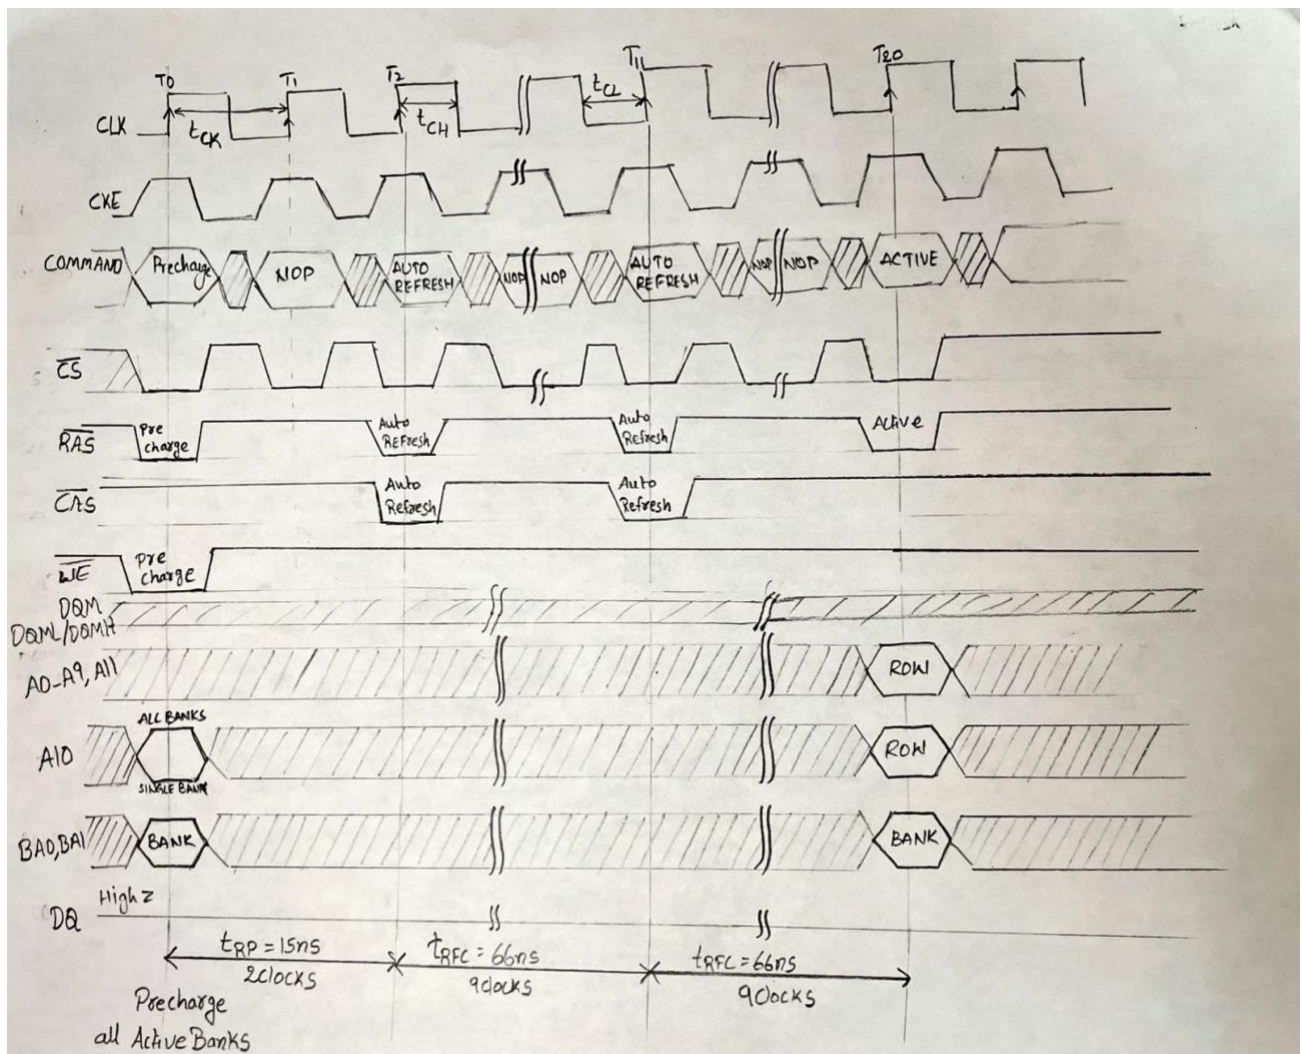 T0 T1 T2 T11 T20
CLK tCK tCH tCL
CKE
COMMAND Precharge NOP AUTO REFRESH NOP NOP AUTO REFRESH NOP NOP ACTIVE
CS
RAS Pre charge Auto REFresh Auto REFresh Active
CAS Auto Refresh Auto Refresh
WE Pre charge
DQM
DQML/DQMH
A0-A9, A11 ROW
ALL BANKS
A10 ROW
SINGLE BANK
BA0,BA1 BANK BANK
High Z
DQ
tRP = 15ns tRFC = 66ns tRFC = 66ns
2clocks 9clocks 9clocks
Precharge
all Active Banks